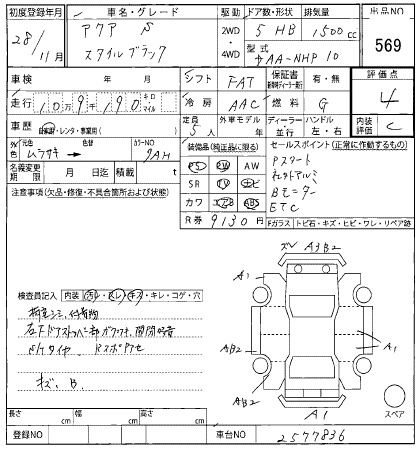 初度登録年月 車名・グレード 駆動 ドア数・形状 排気量 出品NO
28/11月 アクア S 2WD 5 HB 1500cc 569
スタイルブラック 4WD 型式 DAA-NHP10
車検 年 月 シフト FAT 保証書 有・無 評価点
走行 10万9千190 キロ・マイル 冷房 AAC 燃料 G 4
車歴 自家用・レンタ・事業用( ) 定員 5人 外車モデル 年 ディーラー・並行 ハンドル 左・右 内装評価 C
外色 元色 ムラサキ 色替 カラーNO 9AH 装備品(純正品に限る) セールスポイント(正常に作動するもの)
名義変更期限 月 日迄 積載 t PS PW AW Pスタート
注意事項(欠品・修復・不具合箇所および状態) SR TV ナビ 社外アルミ
カワ エアB ABS Bモニター
R券 9130円 ETC
Fガラス トビ石・キズ・ヒビ・ワレ・リペア跡
ズレ A3 B2
A1
検査員記入 内装 汚レ・スレ・キズ・キレ・コゲ・穴
内窓シミ、付着物
開閉時音
ドケタイヤ
キズ、B
AB2 A1
AB2
A1 スペア
長さ cm 幅 cm 高さ cm
登録NO 車台NO 2577836